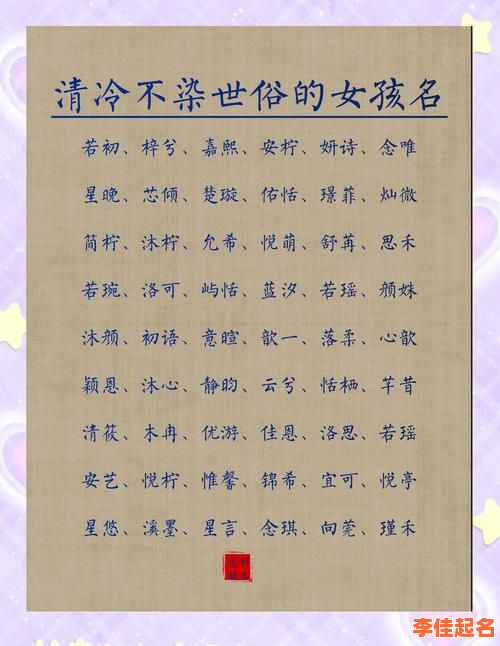 清冷不染世俗的女孩名
若初、梓兮、嘉熙、安柠、妍诗、念唯
星晚、芯倾、楚璇、佑恬、璟菲、灿微
简柠、沐柠、允希、悦萌、舒苒、思禾
若琬、洛可、屿恬、蓝汐、若瑶、颜姝
沐颜、初语、意暄、歆一、落柔、心歆
颖恩、沐心、静昀、云兮、恬栖、芊昔
清筱、木冉、优游、佳恩、洛思、若瑶
安艺、悦柠、惟馨、锦希、宜可、悦亭
星悠、溪墨、星言、念琪、向莞、瑾禾
李佳起名